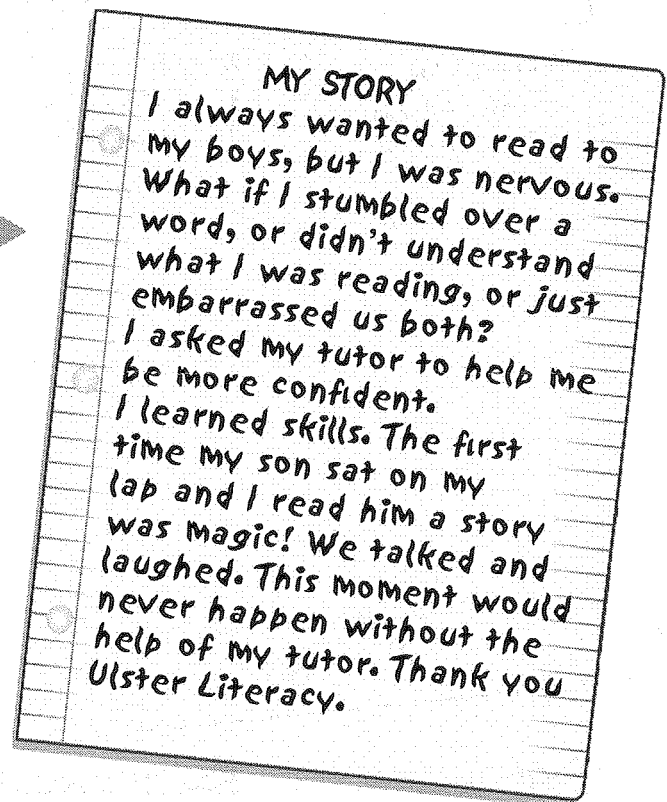 MY STORY
I always wanted to read to
my boys, but I was nervous.
What if I stumbled over a
word, or didn't understand
what I was reading, or just
embarrassed us both?
I asked my tutor to help me
be more confident.
I learned skills. The first
time my son sat on my
lap and I read him a story
was magic! We talked and
laughed. This moment would
never happen without the
help of my tutor. Thank you
Ulster Literacy.